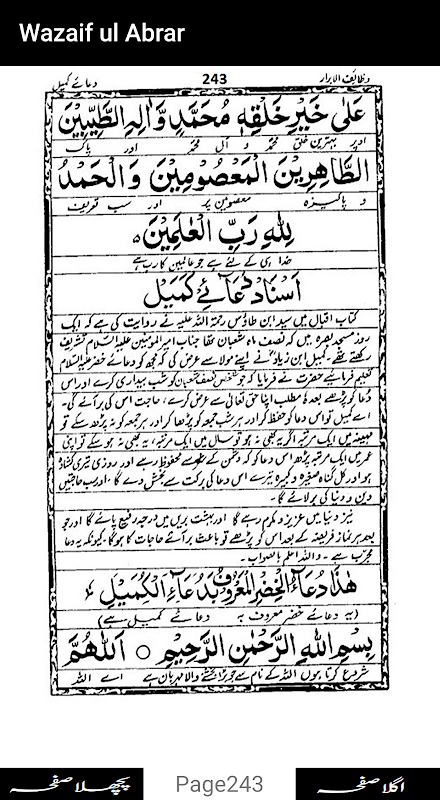 Wazaif ul Abrar
دعائے کمیل 243 وظائف الابرار
عَلٰی خَیْرِ خَلْقِهٖ مُحَمَّدٍ وَّاٰلِهِ الطَّیِّبِیْنَ
اوپر بہترین خلق محمدؐ و آل محمدؐ اور پاک
الطَّاهِرِیْنَ الْمَعْصُوْمِیْنَ وَالْحَمْدُ
و پاکیزہ معصومین پر اور سب تعریف
لِلّٰهِ رَبِّ الْعٰلَمِیْنَ
خدا ہی کے لئے ہے جو عالمین کا رب ہے
اَسْنَادِ دُعَائے کُمَیْل
کتاب اقبال میں سید ابن طاؤس رحمۃ اللہ علیہ نے روایت کی ہے کہ ایک
روز مسجد بصرہ میں کہ نصف ماہ شعبان تھا جناب امیر المومنین علیہ السلام تشریف
رکھتے تھے۔ کمیل ابن زیاد نے اپنے مولا سے عرض کی کہ مجھ کو دعائے خضر علیہ السلام
تعلیم فرمایئے حضرت نے فرمایا کہ جو شخص نصف شعبان کو شب بیداری کرے اور اس
دعا کو پڑھے بعدہٗ مطلب اپنا حق تعالیٰ سے عرض کرے، حاجت اس کی بر آئے گی۔
اے کمیل تو اس دعا کو حفظ کر اور ہر شب جمعہ کو پڑھا کر اور ہر جمعہ کو نہ پڑھ سکے تو
مہینہ میں ایک مرتبہ اگر یہ بھی نہ ہو تو سال میں ایک مرتبہ، یہ بھی نہ ہو سکے تو اپنی
عمر میں ایک مرتبہ پڑھ اس دعا کو کہ دشمن کے محفوظ رہے اور روزی تیری کشادہ
ہو اور کل گناہ صغیرہ و کبیرہ تیرے اس دعا کی برکت سے بخش دے گا، اور سب حاجتیں
دین و دنیا کی بر لائے گا۔
نیز دنیا میں عزیز و مکرم رہے گا اور بہشت بریں میں درجہ رفیع پائے گا اور جو
بعد ہر نماز فریضہ کے بعد اس کو پڑھے تو باعث بر آنے حاجات کا ہوگا، کیونکہ یہ دعا
مجرب ہے۔ واللہ اعلم بالصواب۔
هٰذَا دُعَاءُ الْخِضْرِ الْمَعْرُوْفُ بِدُعَاءِ الْکُمَیْلِ
(یہ دعائے خضر معروف بہ دعائے کمیل ہے)
بِسْمِ اللّٰهِ الرَّحْمٰنِ الرَّحِیْمِ ○ اَللّٰهُمَّ
شروع کرتا ہوں اللہ کے نام سے جو بڑا بخشنے والا مہربان ہے اے اللہ
پچھلا صفحہ Page243 اگلا صفحہ